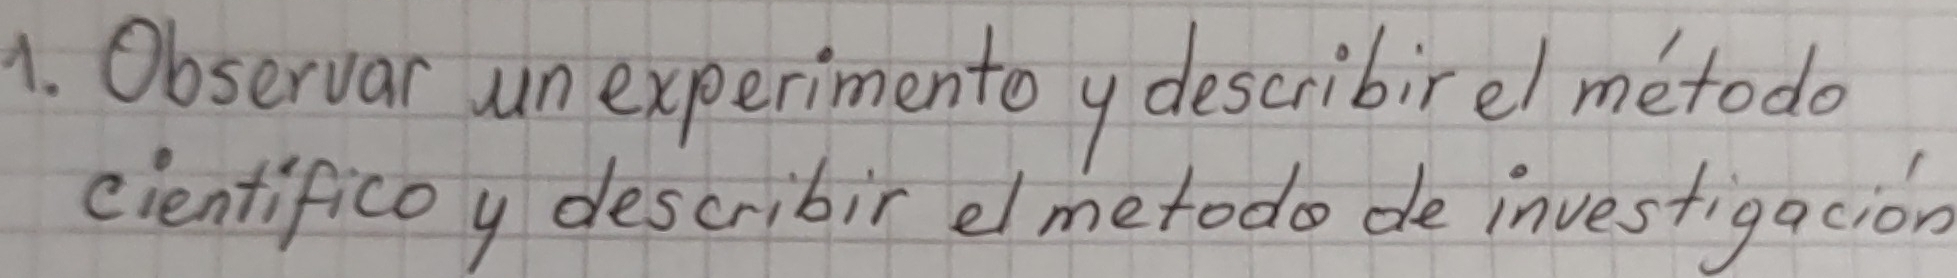 1. Observar un experimento y describir el método
científico y describir el metodo de investigación